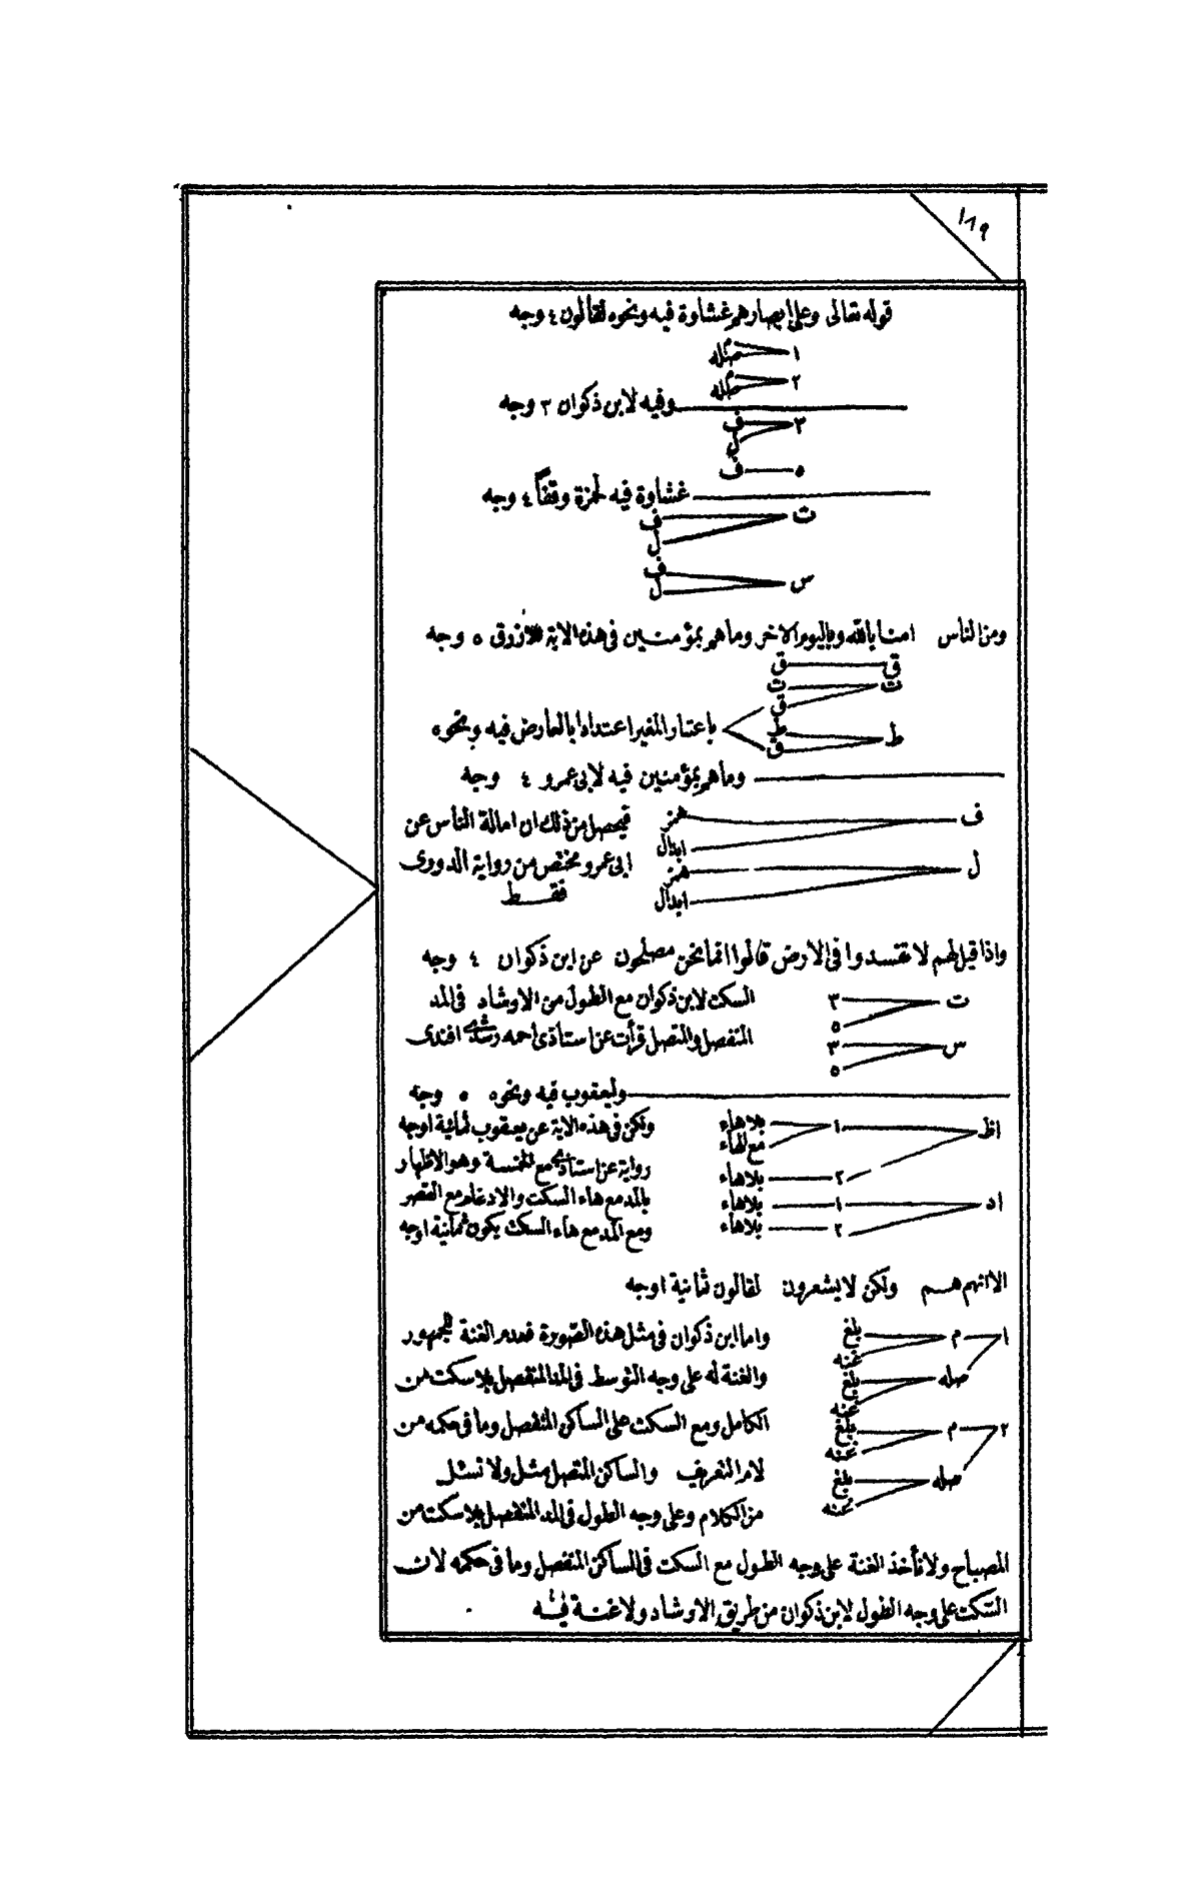 ١٨٩
قوله تعالى وعلى ابصارهم غشاوة فيه ونحوه لقالون ٤ وجه
١ م
صله
٢ م
صله
وفيه لابن ذكوان ٣ وجه
٣ ف
ل
٥ ف
غشاوة فيه لحمزة وقفاً ٤ وجه
ت ف
ل
س ف
ل
ومن الناس امنا بالله وباليوم الاخر وما هم بمؤمنين فى هذه الاية ازرق ٥ وجه
ق ق
ت ت
ق
ط ط
ق
باعتبار المغير اعتدادا بالعارض فيه ونحوه
وما هم بمؤمنين فيه لابى عمرو ٤ وجه
ف همز
ابدال
ل همز
ابدال
فيحصل من ذلك ان امالة الناس عن
ابى عمرو مختص من رواية الدورى
فقط
واذا قيل لهم لا تفسدوا فى الارض قالوا انما نحن مصلحون عن ابن ذكوان ٤ وجه
ت ٣
٥
س ٣
٥
السكت لابن ذكوان مع الطول من الارشاد فى المد
المنفصل والمتصل قرأت عن استاذى احمد رشدى افندى
وليعقوب فيه ونحوه ٥ وجه
اظ ١ بلاهاء
مع الهاء
٢ بلاهاء
اد ١ بلاهاء
٢ بلاهاء
ولكن فى هذه الاية عن يعقوب ثمانية اوجه
رواية عن استاذى مع الخمسة وهو الاظهار
بالمد مع هاء السكت والادغام مع القصر
ومع المد مع هاء السكت يكون ثمانية اوجه
الا انهم هم ولكن لا يشعرون لقالون ثمانية اوجه
١ م بلغ
غنه
صله بلغ
غنه
٢ م بلغ
غنه
صله بلغ
غنه
واما ابن ذكوان فى مثل هذه الصورة فعدم الغنة للجمهور
والغنة له على وجه التوسط فى المد المنفصل بلا سكت من
الكامل ومع السكت على الساكن المنفصل وما فى حكمه من
لام التعريف والساكن المتصل مثل ولا تسئل
من الكلام وعلى وجه الطول فى المد المنفصل بلا سكت من
المصباح ولا نأخذ الغنة على وجه الطول مع السكت فى الساكن المنفصل وما فى حكمه لان
السكت على وجه الطول لابن ذكوان من طريق الارشاد ولا غنة فيه